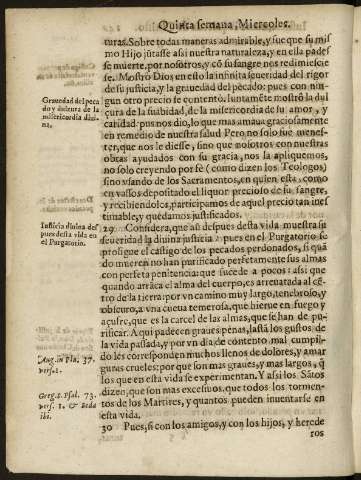 Quinta semana, Miercoles.
turas. Sobre todas maneras admirable, y fue que su mis
mo Hijo jũtasse assi nuestra naturaleza, y en ella pades
se muerte, por nosotros, y cõ su sangre nos redimiesse
se. Mostrò Dios en esto la infinita seueridad del rigor
de su justicia, y la grauedad del pecado: pues con nin-
gun otro precio se contentò. Iuntamẽte mostrò la dul
çura de la suauidad, de la misericordia de su amor, y
caridad: pus nos dio, lo que mas amaua graciosamente
en remedio de nuestra salud Pero no solo fue menes-
ter, que nos le diesse, sino que nosotros con nuestras
obras ayudados con su gracia, nos la apliquemos,
no solo creyendo por fè (como dizen los Teologos)
sino vsando de los Sacramentos, en quien està como
en vasos depositado el liquor precioso de su sangre,
y recibiendolos, participamos de aquel precio tan ines
timable, y quedamos justificados.
Grauedad del peca
do y dulçura de la
misericordia diui-
na.
29 Considera, que aũ despues desta vida muestra su
seueridad la diuina justicia: pues en el Purgatorio se
prosigue el castigo de los pecados perdonados, si quã
do mueren no han purificado perfetamente sus almas
con perfeta penitencia: que sucede a pocos: assi que
quando arrãca el alma del cuerpo, es arreuatada al cẽ-
tro de la tierra: por vn camino muy largo, tenebroso, y
obscuro, a vna cueua temerosa, que hierue en fuego y
açufre, que es la carcel de las almas, que se han de pu-
rificar. Aqui padecen graues penas, hasta los gustos de
la vida passada, y por vn dia de contento mal cumpli-
do les corresponden muchos llenos de dolores, y amar
guras crueles: por que son mas graues, y mas largos, q̃
los que en esta vida se experimentan. Y assi los Sãtos
dizen, que son mas excessuos, que todos los tormen-
tos de los Martires, y quantos pueden inuentarse en
esta vida.
Iusticia diuina des
pues desta vida en
el Purgatorio.
Aug. in Psa. 37.
vers. 1.
Greg. s. Psal. 73.
vers. 1. & Beda
ibi.
30 Pues, si con los amigos, y con los hijos, y herede
ros